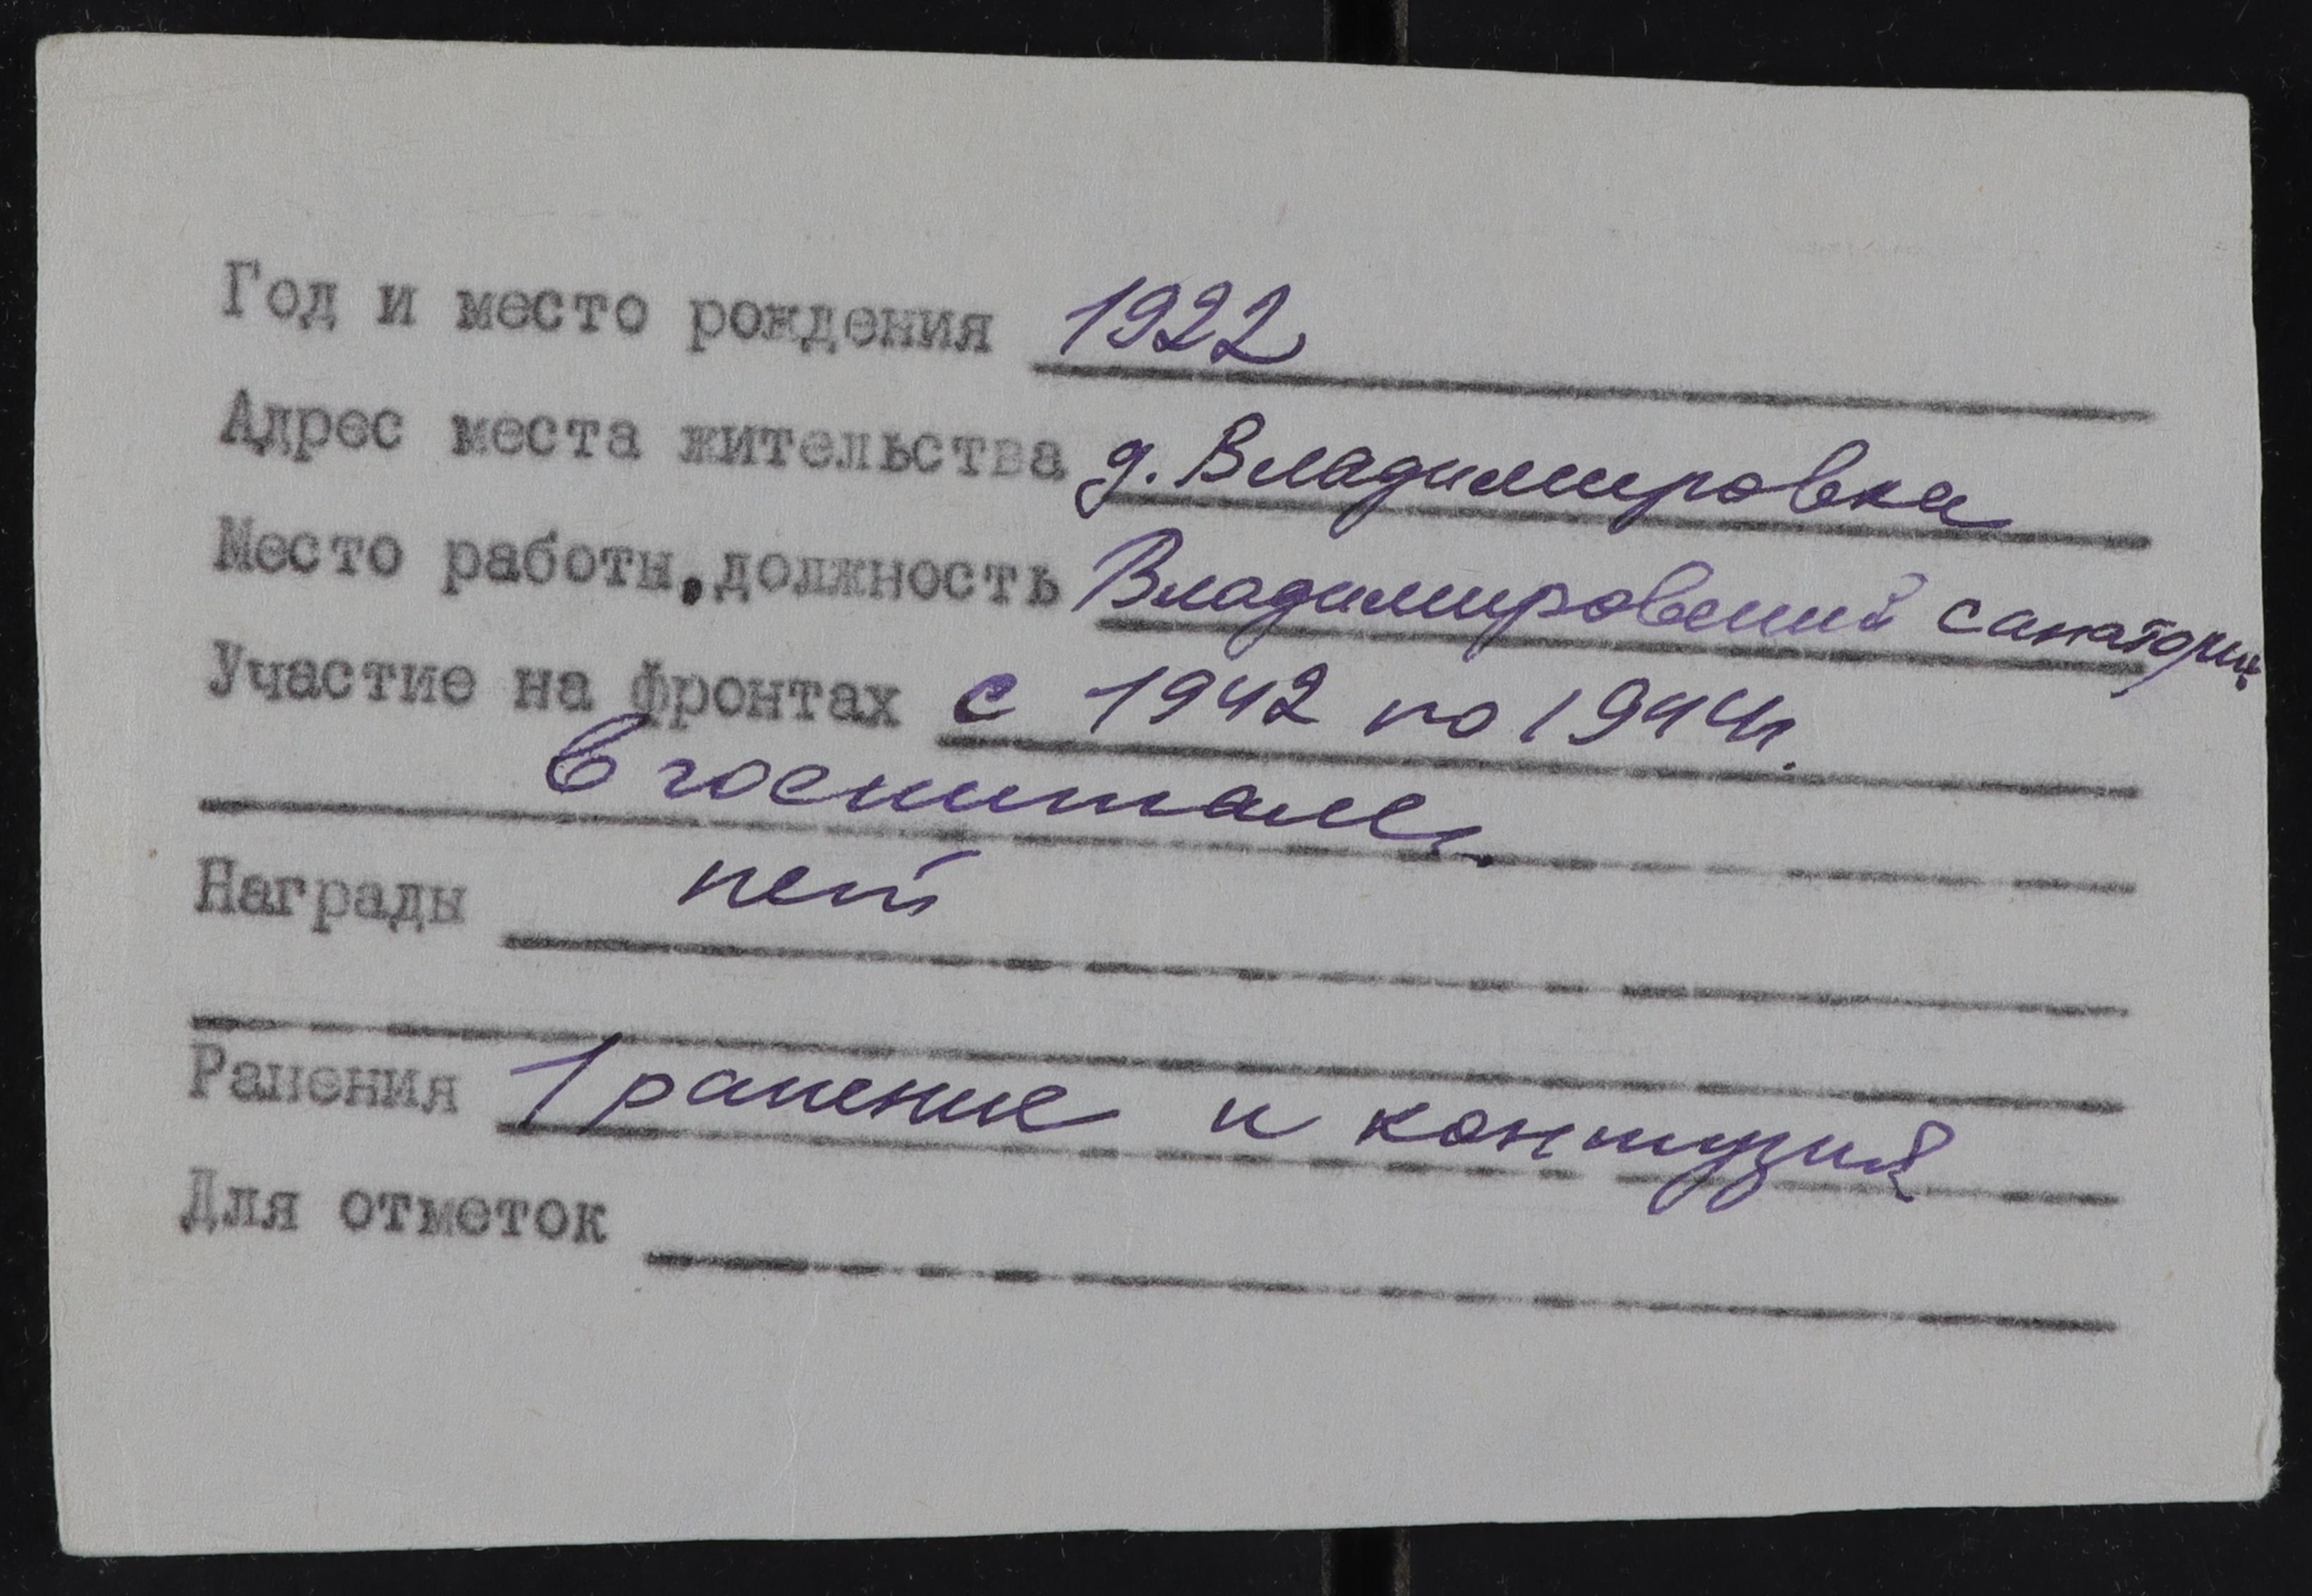 Год и место рождения 1922
Адрес места жительства д. Владимировка
Место работы, должность Владимировский санаторий
Участие на фронтах с 1942 по 1944г.
в госпитале.
Награды нет
Ранения 1 ранение и контузия
Для отметок